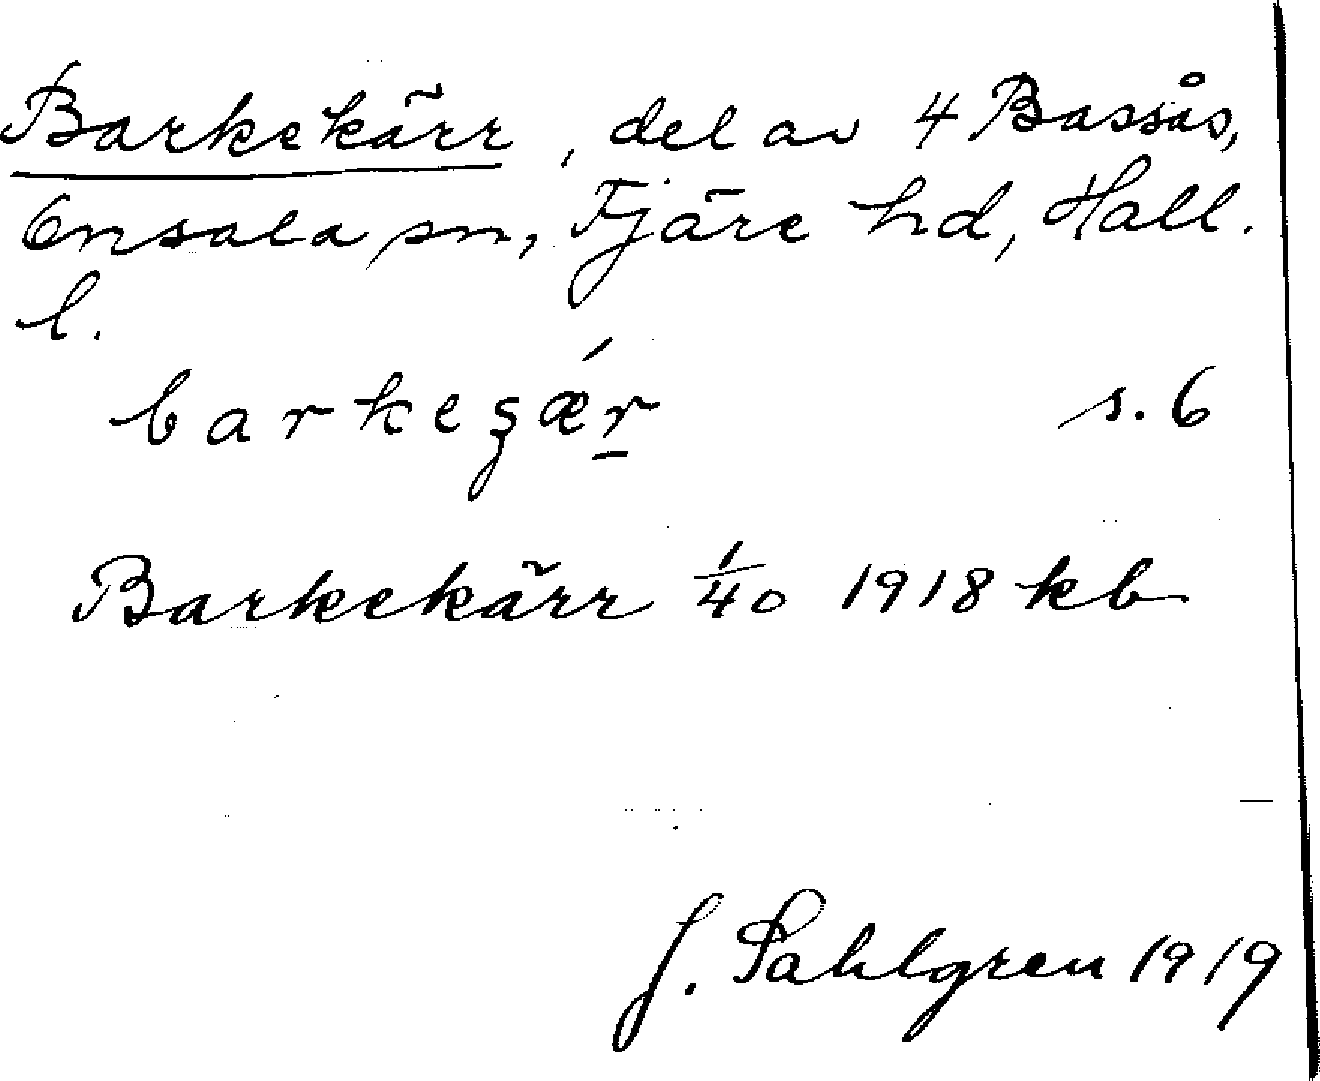 Barkekärr, del av 4 Bassås,
Onsala sn, Fjäre hd, Hall.
l.
barkeʂǽr s. 6
Barkekärr 1/40 1918 kb
J. Sahlgren 1919